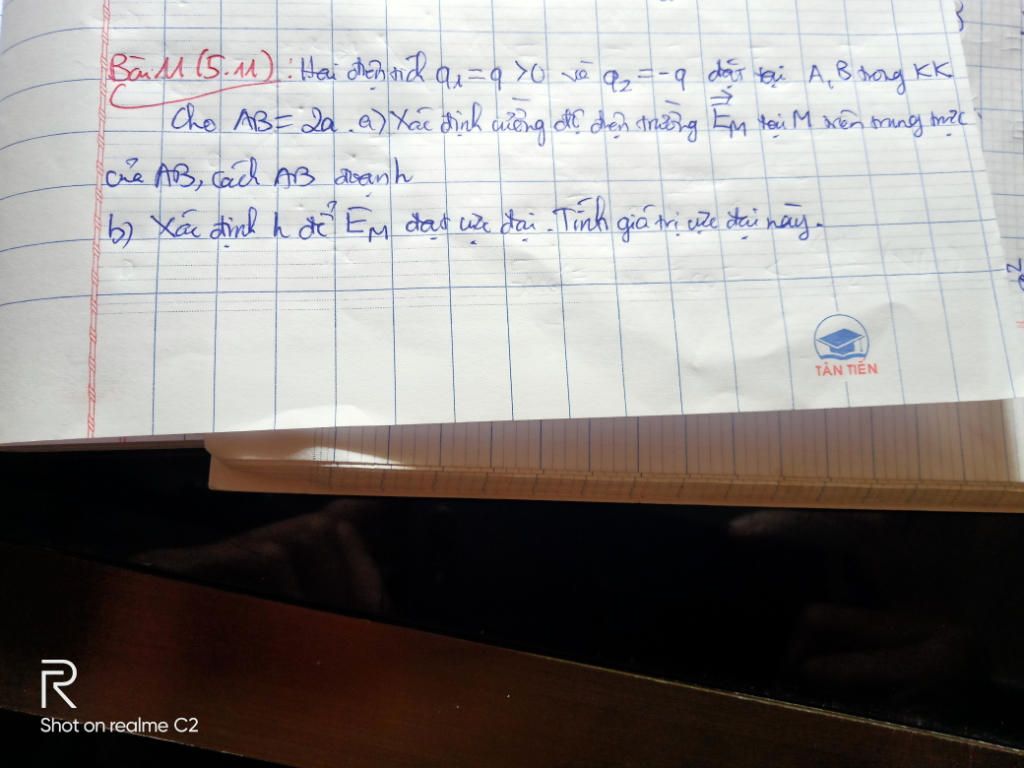 Bài 11 (5.11): Hai điện tích q₁ = q > 0 và q₂ = -q đặt tại A, B trong KK
Cho AB = 2a. a) Xác định cường độ điện trường E⃗M tại M trên trung trực
của AB, cách AB đoạn h
b) Xác định h để EM đạt cực đại. Tính giá trị cực đại này.
TÂN TIẾN
R
Shot on realme C2